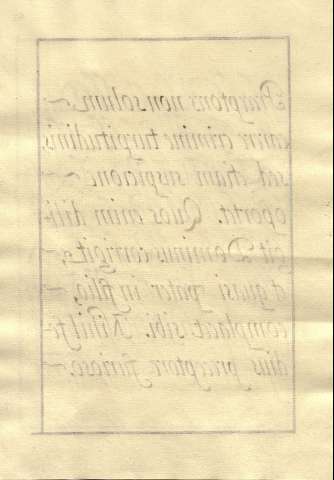 non solum
carere crimine turpitudinis,
sed etiam suspicione
oportet. Quos enim dili-
git Dominus corrigit,
et quasi pater in filio,
complacet sibi. Nihil fœ
dius præceptore furioso.